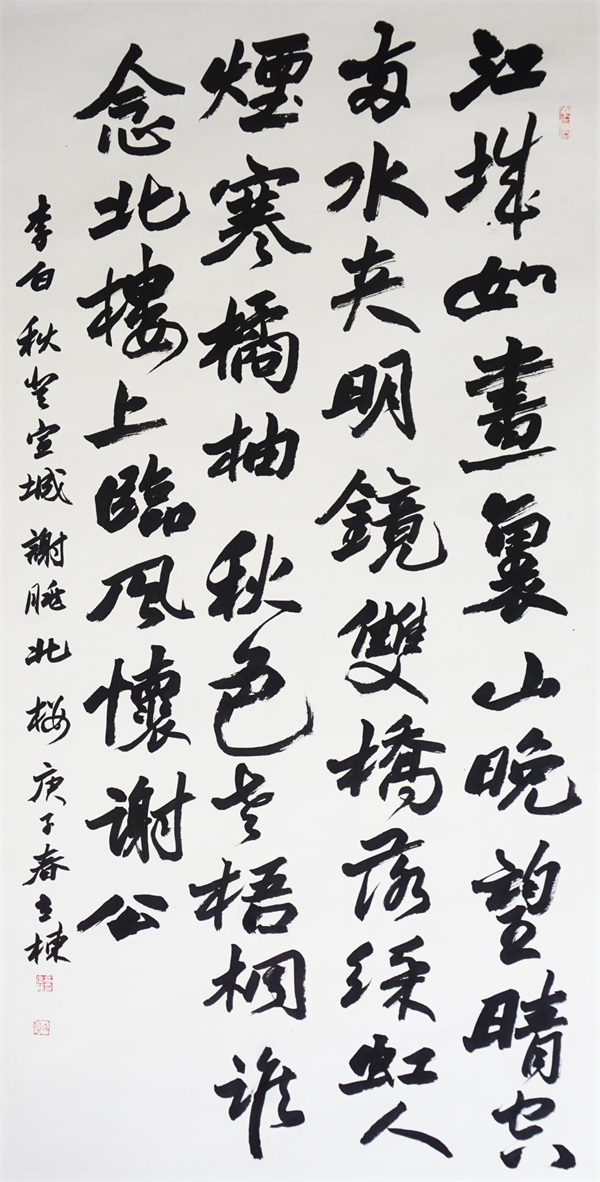 江城如畫裏山晚望晴空
兩水夾明鏡雙橋落綵虹人
煙寒橘柚秋色老梧桐誰
念北樓上臨風懷謝公
李白秋登宣城謝朓北楼庚子春立棟